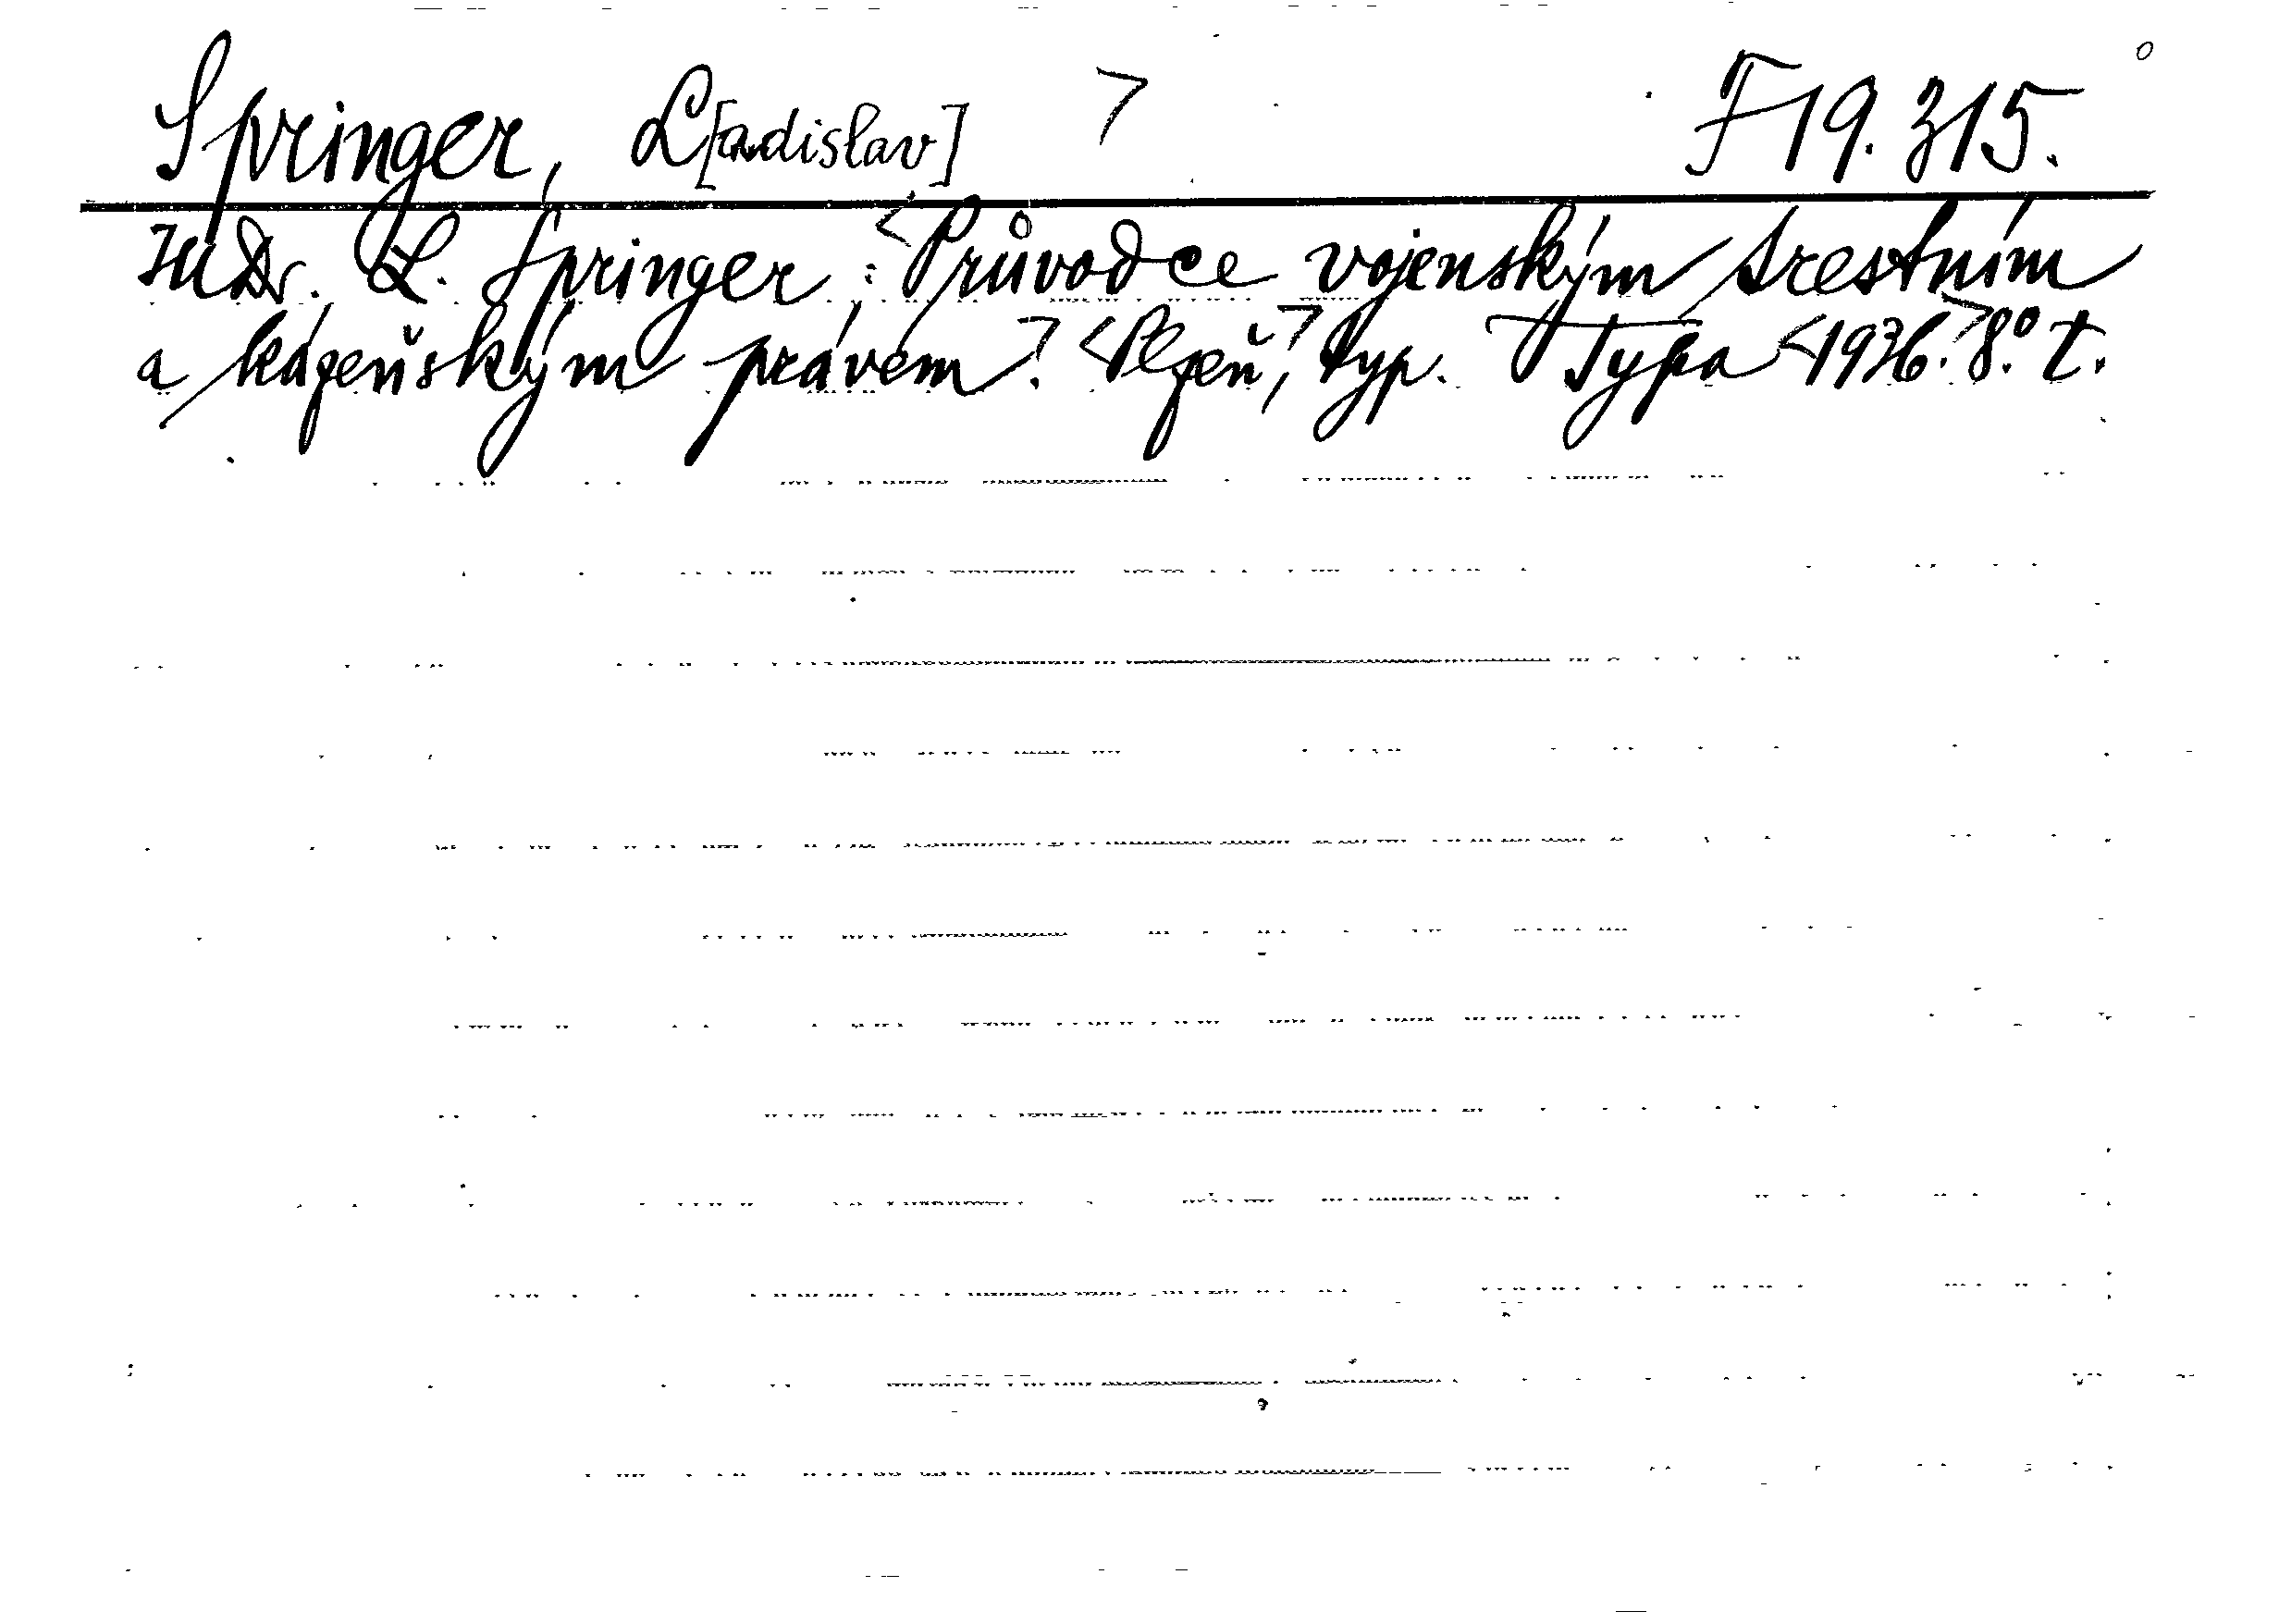 Springer, L[adislav] > F 19.315.
JUDr. L. Springer: <Průvodce vojenským trestním
a kázeňským právem.> <Plzeň,> typ. Typa <1936.> 8.° t.